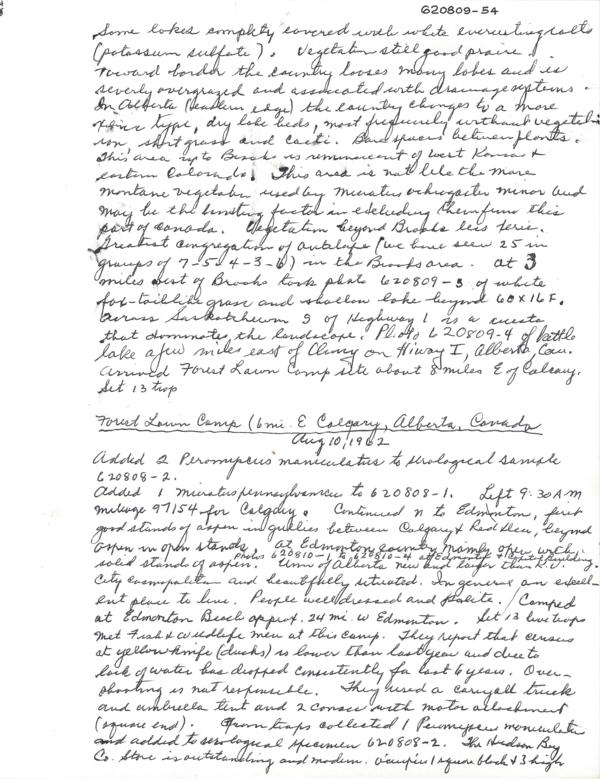 620809-54
Some lakes complety covered with white encrusting salts
(potassum sulfate). Vegetation still good prairie.
Toward border the country looses many lakes and is
severly overgrazed and associated with drainage systems.
In Alberta (eastern edge) the country changes to a more
xeric type, dry lake beds, most frequently without vegetat-
ion, short grass and cacti. Bare spaces between plants.
This area up to Brooks is reminiscent of west Kansas &
eastern Colorado. This area is not like the more
montane vegetation used by Microtus ochrogaster minor and
may be the limiting factor in excluding them from this
part of Canada. Vegetation beyond Brooks less xeric.
Greatest congregation of antelope (we have seen 25 in
groups of 7-5-4-3-6) in the Brooks area. At 3
miles west of Brooks took photo 620809-3 of white
fox-tail like grass and shallow lake beyond 60x16F.
Across Saskatchewan S of Highway 1 is a cuesta
that dominates the landscape. Photo 620809-4 of
lake a few miles east of Cluny on Hiway I, Alberta, Can.
Arrived Forest Lawn Camp site about 8 miles E of Calgary.
Set 13 trap
Forest Lawn Camp (6 mi. E Calgary, Alberta, Canada
Aug 10, 1962
Added 2 Peromyscus maniculatus to serological sample
620808-2.
Added 1 Microtus pennsylvanicus to 620808-1. Left 9:30 AM
mileage 97154 for Calgary. Continued N to Edmonton, first
good stands of aspen in gullies between Calgary & Red Deer, beyond
aspen in open stands. At Edmonton country mainly open with
photos 620810-1 to 620810-4 at Edmonton
solid stands of aspen. Univ of Alberta new and larger than K.U.
City cosmopolitan and beautifully situated. In general an excell-
ent place to live. People well dressed and polite. / Camped
at Edmonton Beach approx. 24 mi. W Edmonton. Set 13 live traps
Met Fish & Wildlife men at this camp. They report that census
at yellow knife (ducks) is lower than last year and due to
lack of water has dropped consistently for last 6 years. Over-
shooting is not responsible. They used a carryall truck
and umbrella tent and 2 canoes with motor attachment
(square end). From traps collected 1 Peromyscus maniculatus
and added to serological specimen 620808-2. The Hudson Bay
Co. Store is outstanding and modern. Occupies 1 square block & 3 high